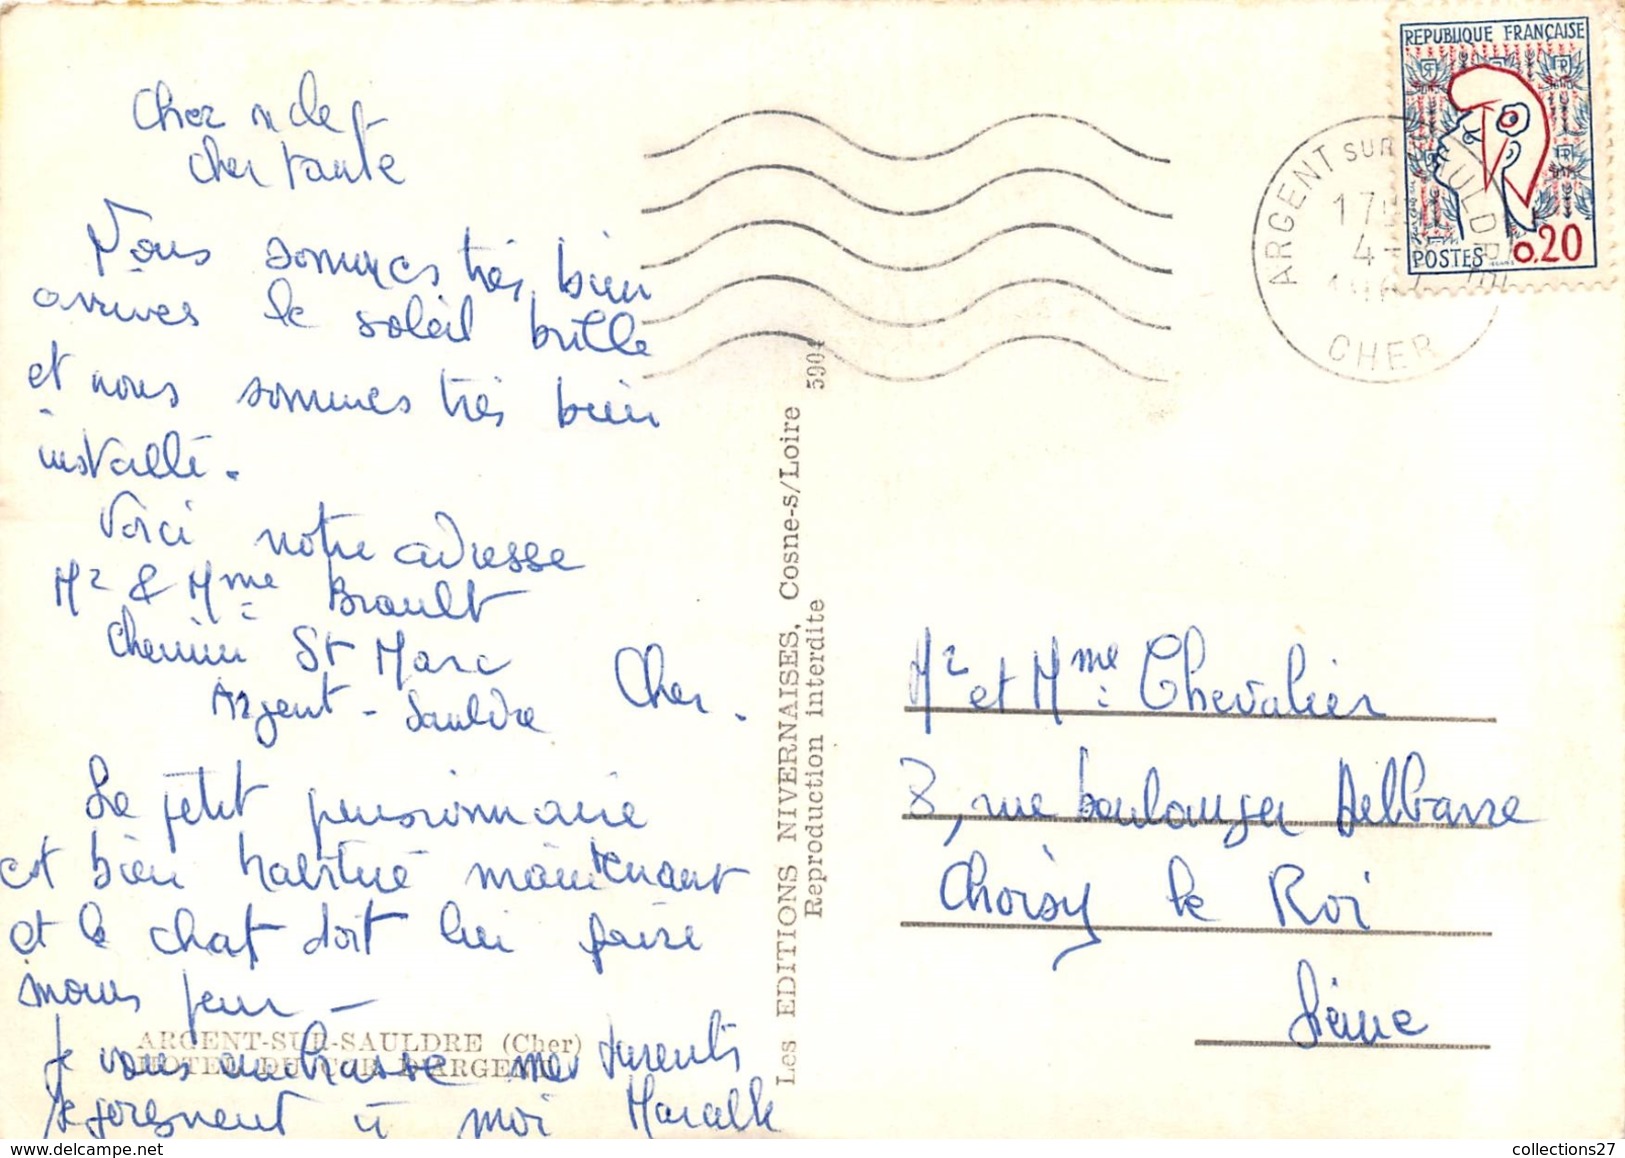 Cher oncle
cher tante
Nous sommes très bien
arrivés le soleil brille
et nous sommes très bien
installé.
Voici notre adresse
Mr & Mme Brault
Chemin St Marc
Argent-Sauldre Cher.
Le petit pensionnaire
est bien habitué maintenant
et le chat doit lui faire
moins peur -
Je vous embrasse mes parents
se joignent à moi
ARGENT-SUR-SAULDRE (Cher)
HOTEL DU COR D'ARGENT
Les EDITIONS NIVERNAISES, Cosne-s/Loire 5904
Reproduction interdite
REPUBLIQUE FRANÇAISE
POSTES 0.20
ARGENT SUR SAULDRE
17
4-
CHER
Mr et Mme Chevalier
8, rue boulanger Delbasse
Choisy le Roi
Seine
collections27